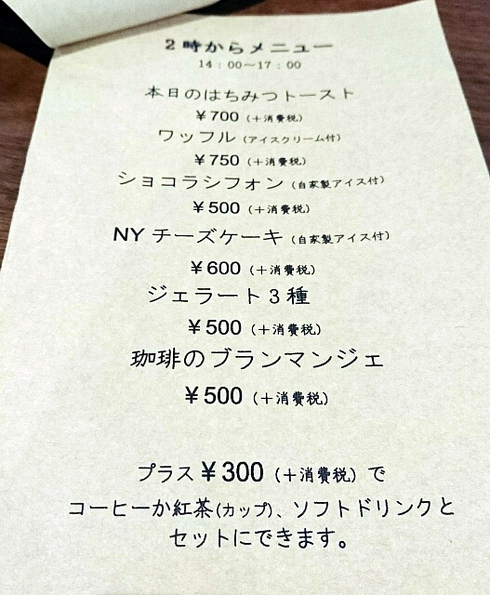 2時からメニュー
14:00〜17:00
本日のはちみつトースト
¥700(+消費税)
ワッフル(アイスクリーム付)
¥750(+消費税)
ショコラシフォン(自家製アイス付)
¥500(+消費税)
NYチーズケーキ(自家製アイス付)
¥600(+消費税)
ジェラート3種
¥500(+消費税)
珈琲のブランマンジェ
¥500(+消費税)
プラス¥300(+消費税)で
コーヒーか紅茶(カップ)、ソフトドリンクと
セットにできます。